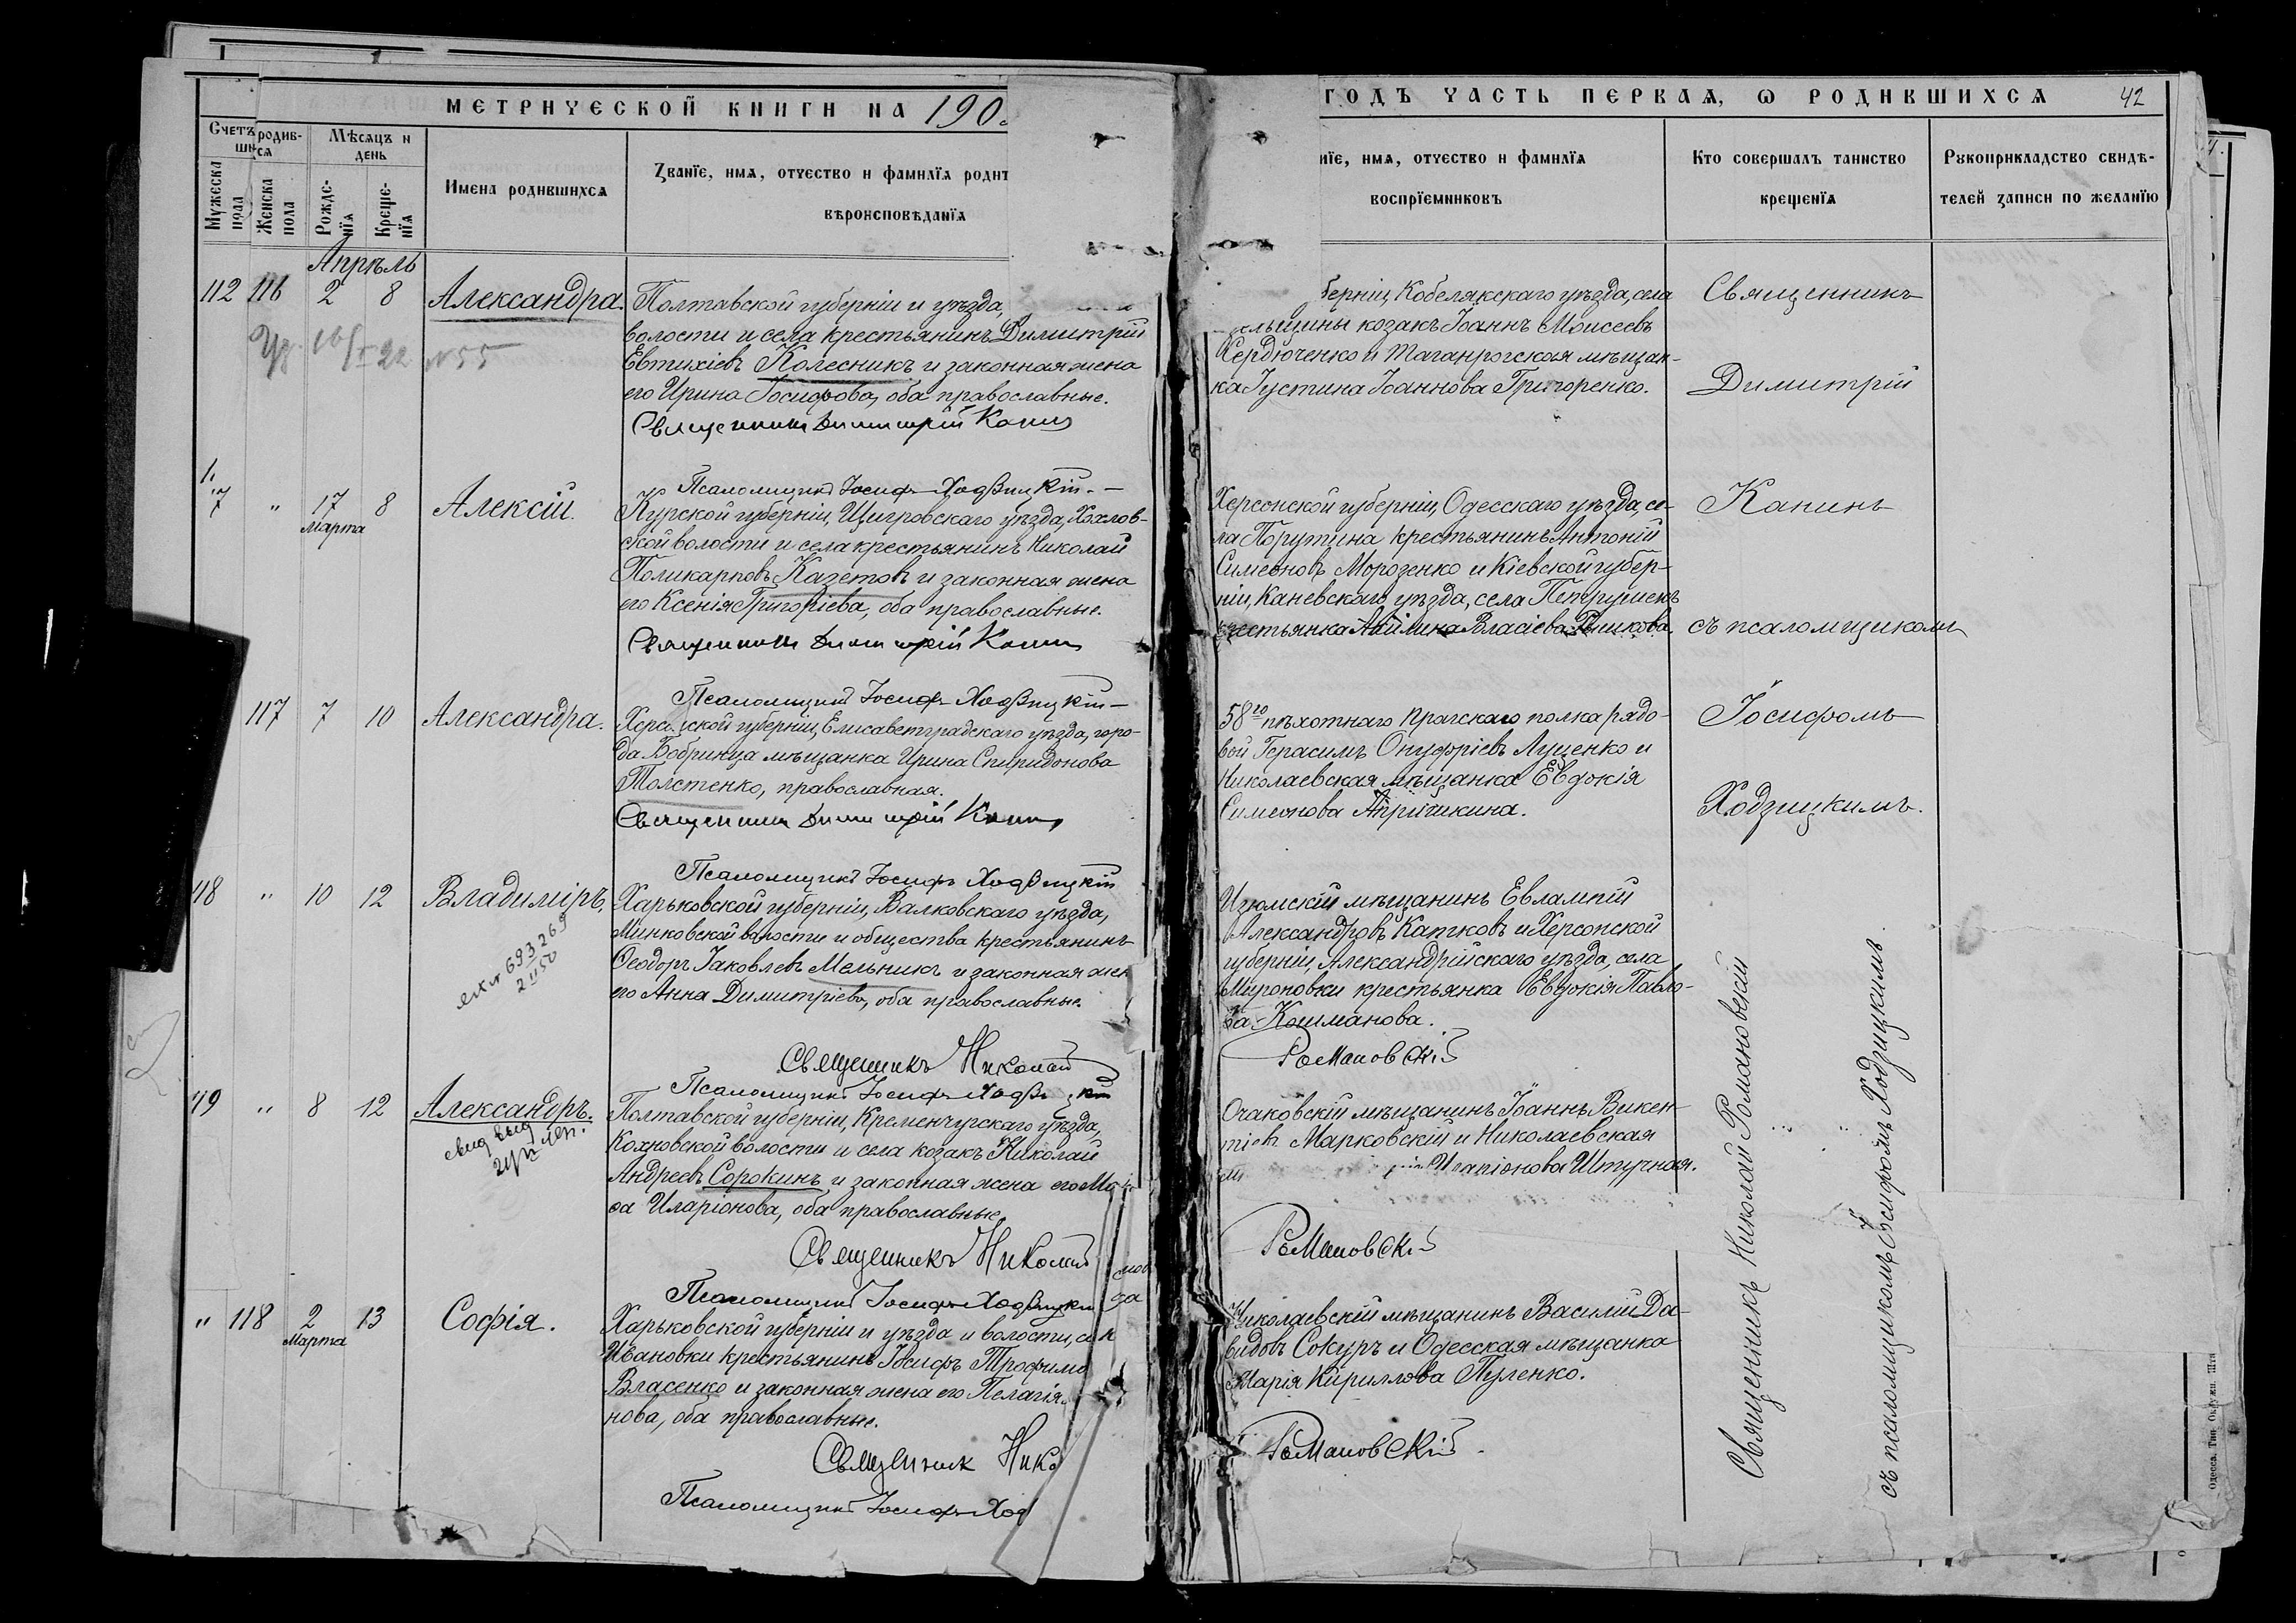 МЕТРИЧЕСКОЙ КНИГИ НА 190
Счетъ родив-
шихся
Мѣсяцъ и
день
Мужеска
пола
Женска
пола
Рожде-
нія
Креще-
нія
Имена родившихся
Званіе, имя, отчество и фамилія
вѣроисповѣданія
Апрѣль
112 116 2 8 Александра.
22 N 55
Полтавской губерніи и уѣзда,
волости и села крестьянинъ Димитрій
Евтихіевъ Колесникъ и законная жена
его Ирина Іосифова, оба православные.
Священникъ Димитрій Канинъ
Псаломщикъ Іосифъ Ходзицкій.
7 " 17 8 Алексій.
Марта
Курской губерніи, Щигровскаго уѣзда, Хохлов-
ской волости и села крестьянинъ Николай
Поликарповъ Казетовъ и законная жена
его Ксенія Григоріева, оба православные.
Священникъ Димитрій Канинъ
Псаломщикъ Іосифъ Ходзицкій
117 7 10 Александра.
Херсонской губерніи, Елисаветградскаго уѣзда, горо-
да Бобринца мѣщанка Ирина Спиридонова
Толстенко, православная.
Священникъ Димитрій Канинъ
Псаломщикъ Іосифъ Ходзицкій
118 " 10 12 Владиміръ.
693269
2 II 50
Харьковской губерніи, Валковскаго уѣзда,
Минковской волости и общества крестьянинъ
Ѳеодоръ Іаковлевъ Мельникъ и законная жен
его Анна Димитріева, оба православные.
Священникъ Николай
Псаломщикъ Іосифъ Ходзицкій
119 " 8 12 Александръ.
Полтавской губерніи, Кременчугскаго уѣзда,
Кохновской волости и села козакъ Николай
Андреевъ Сорокинъ и законная жена его
Иларіонова, оба православные.
Священникъ Николай
Псаломщикъ Іосифъ Ходзицкій
" 118 2 13 Софія.
Марта
Харьковской губерніи и уѣзда и волости,
Ивановки крестьянинъ Іосифъ Трофимо
Власенко и законная жена его Пелагія
нова, оба православные.
Священник Нико
Псаломщикъ Іосифъ Ход
ГОДЪ ЧАСТЬ ПЕРВАЯ, О РОДИВШИХСЯ 42
ніе, имя, отчество и фамилія
воспріемниковъ
Кто совершалъ таинство
крещенія
Рукоприкладство свидѣ-
телей записи по желанію
берніи, Кобелякскаго уѣзда, села
козакъ Іоаннъ Моисеевъ
Кердюченко и Таганрогская мѣщан-
ка Іустина Іоаннова Григоренко.
Херсонской губерніи, Одесскаго уѣзда, се-
ла Порутина крестьянинъ Антоній
Симеоновъ Морозенко и Кіевской губер-
ніи, Каневскаго уѣзда, села Петрушекъ
крестьянка Власіева
58го пѣхотнаго Прагскаго полка рядо-
вой Герасимъ Онуфріевъ Луценко и
Николаевская мѣщанка Евдокія
Симеонова Апричикина.
Изюмскій мѣщанинъ Евлампій
Александровъ Катковъ и Херсонской
губерніи, Александрійскаго уѣзда, села
Мироновки крестьянка Евдокія Павло-
ва Кошманова.
Романовскій
Очаковскій мѣщанинъ Іоаннъ Викен-
тіевъ Марковскій и Николаевская
Иларіонова Штучная.
Романовскій
Николаевскій мѣщанинъ Василій Да-
видовъ Сокуръ и Одесская мѣщанка
Марія Кириллова Пуленко.
Романовскій
Священникъ
Димитрій
Канинъ
съ псаломщикомъ
Іосифомъ
Ходзицкимъ.
Священникъ Николай Романовскій
съ псаломщикомъ Іосифомъ Ходзицкимъ.
Одесса. Тип. Окружн. Шта